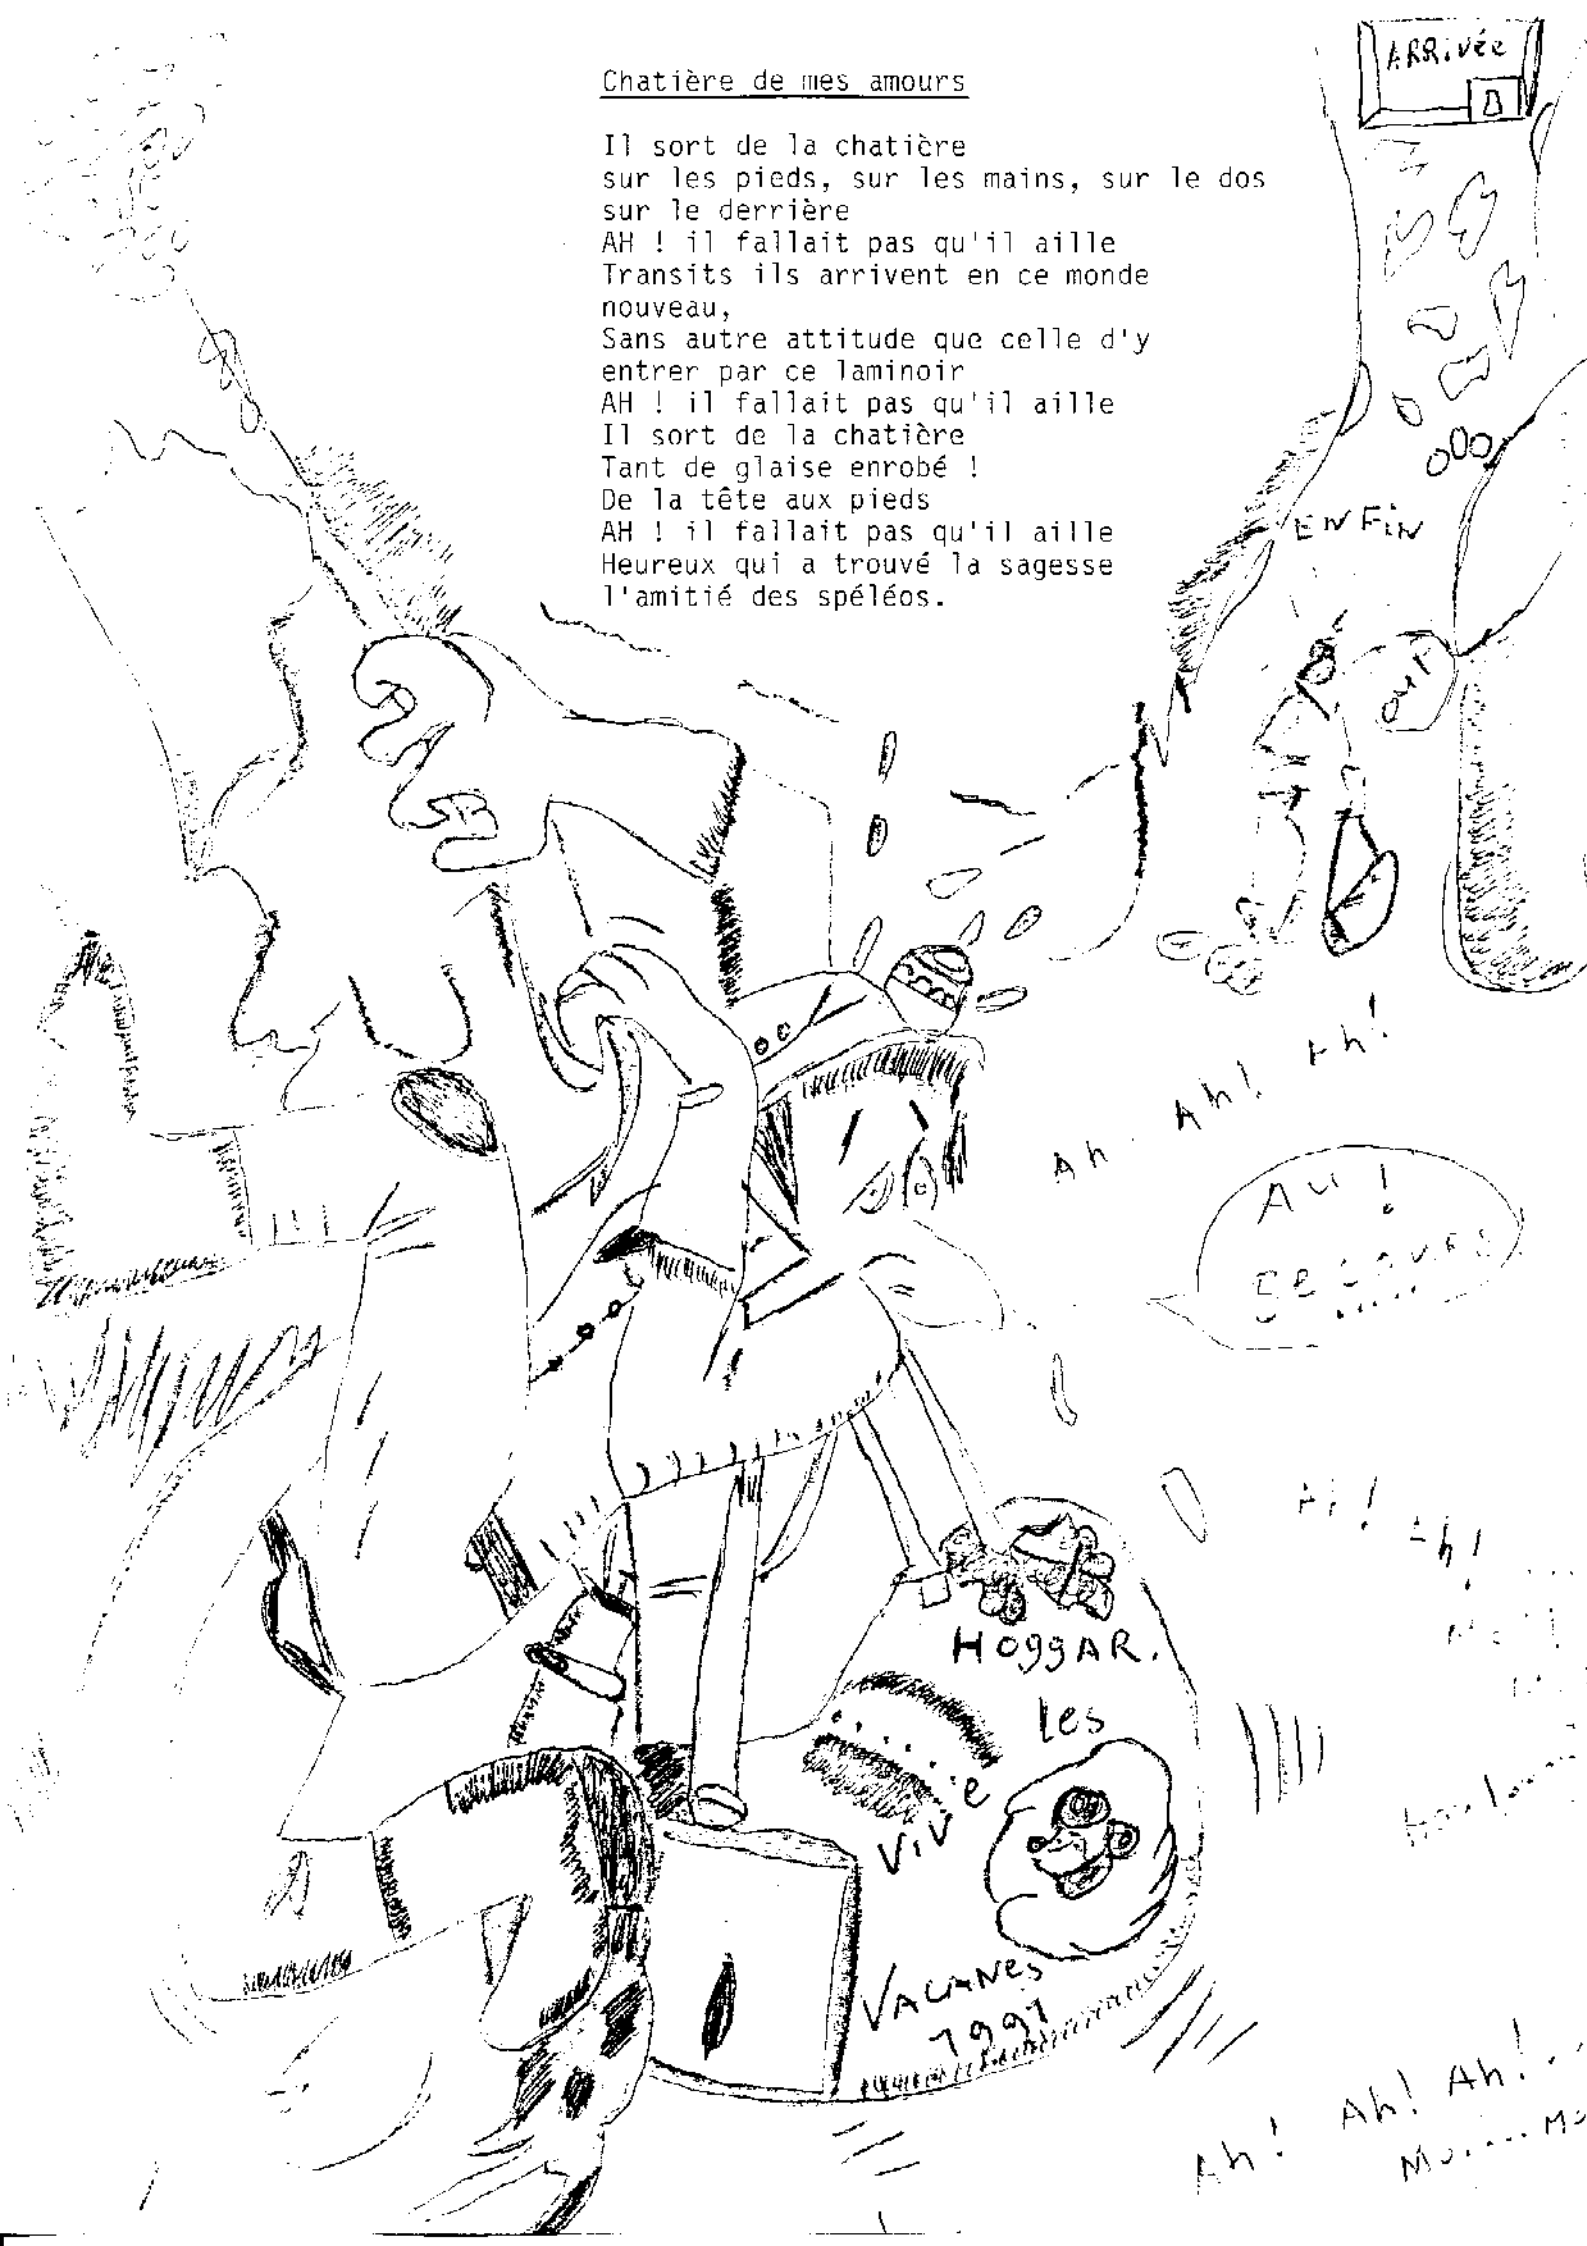 ARRivée
Chatière de mes amours
Il sort de la chatière
sur les pieds, sur les mains, sur le dos
sur le derrière
AH ! il fallait pas qu'il aille
Transits ils arrivent en ce monde
nouveau,
Sans autre attitude que celle d'y
entrer par ce laminoir
AH ! il fallait pas qu'il aille
Il sort de la chatière
Tant de glaise enrobé !
De la tête aux pieds
AH ! il fallait pas qu'il aille
Heureux qui a trouvé la sagesse
l'amitié des spéléos.
ENFiN
OUF
Ah. Ah! Ah!
AU!
SECOURS
HOggAR.
les
ViVe
VACANes
1991
Ah! Ah! Ah!..